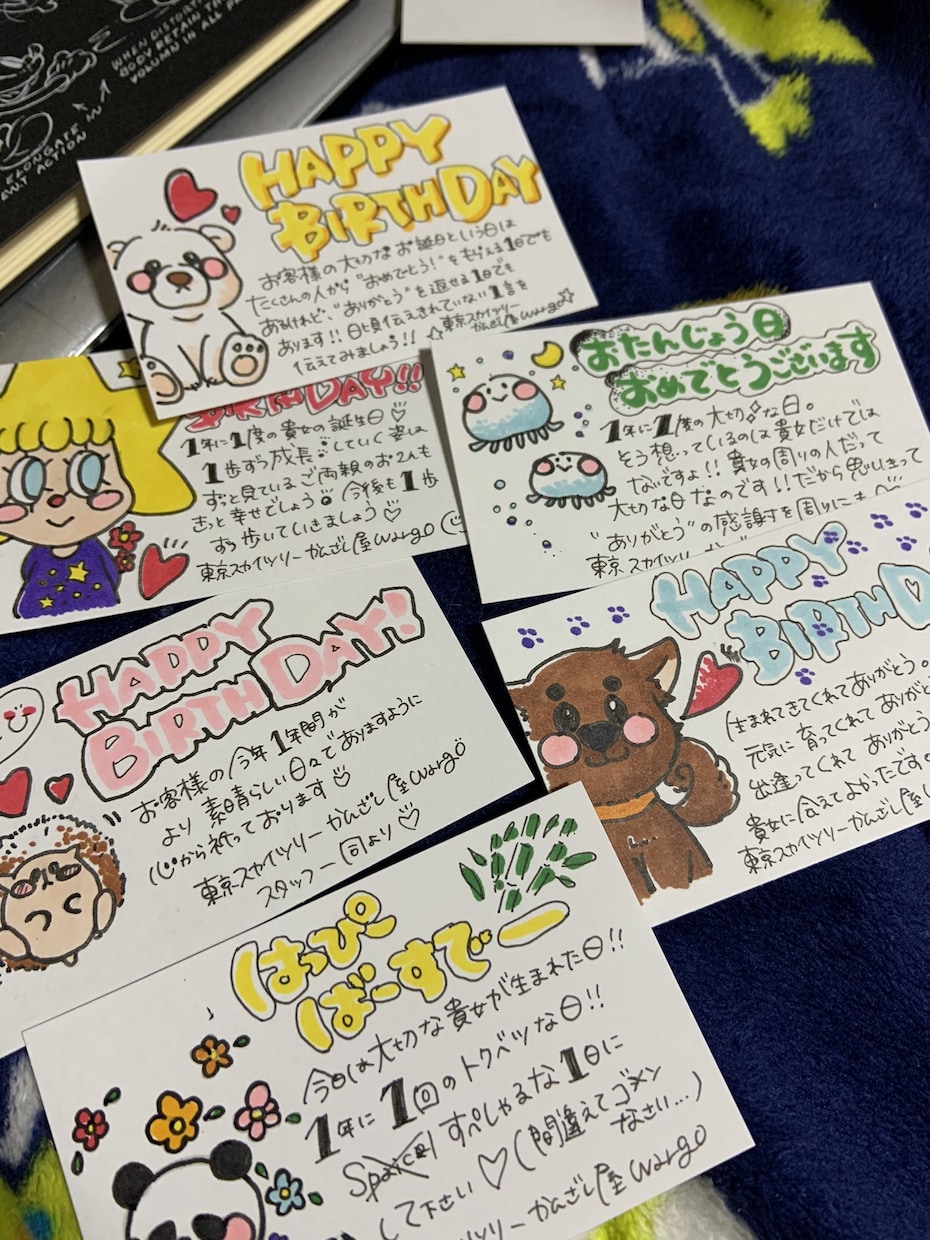 WHEN DISTORT
VOLUME IN ALL
ELONGATE
ACTION IN
HAPPY
BIRTHDAY
お客様の大切なお誕生日という日は
たくさんの人から"おめでとう!"をもらえる1日でも
あるけれど、"ありがとう"を返せる1日でも
あります!!日頃伝えきれていない1言を
伝えてみましょう!!
☆東京スカイツリー
かんざし屋wargo☆
BIRTHDAY!!
1年に1度の貴女の誕生日♡
1歩ずつ成長していく姿は
ずっと見ているご両親のお2人も
きっと幸せでしょう。今後も1歩
ずつ歩いていきましょう♡
東京スカイツリーかんざし屋wargo
おたんじょう日
おめでとうございます
1年に1度の大切な日。
そう想っているのは貴女だけでは
ないですよ!!貴女の周りの人だって
大切な日なのです!!だから思いきって
"ありがとう"の感謝を周りにも
東京スカイツリーかんざし屋
HAPPY
BIRTHD
生まれてきてくれてありがとう。
元気に育ってくれてありが
出逢ってくれてありがとう
貴女に会えてよかったです。
東京スカイツリーかんざし屋
HAPPY
BIRTHDAY!
お客様の今年1年間が
より素晴らしい日々でありますように
心から祈っております♡
東京スカイツリーかんざし屋wargo
スタッフ一同より♡
はっぴー
ばーすでー
今日は大切な貴女が生まれた日!!
1年に1回のトクベツな日!!
すぺしゃるな1日に
して下さい♡(間違えてゴメン
なさい…)
イツリーかんざし屋wargo